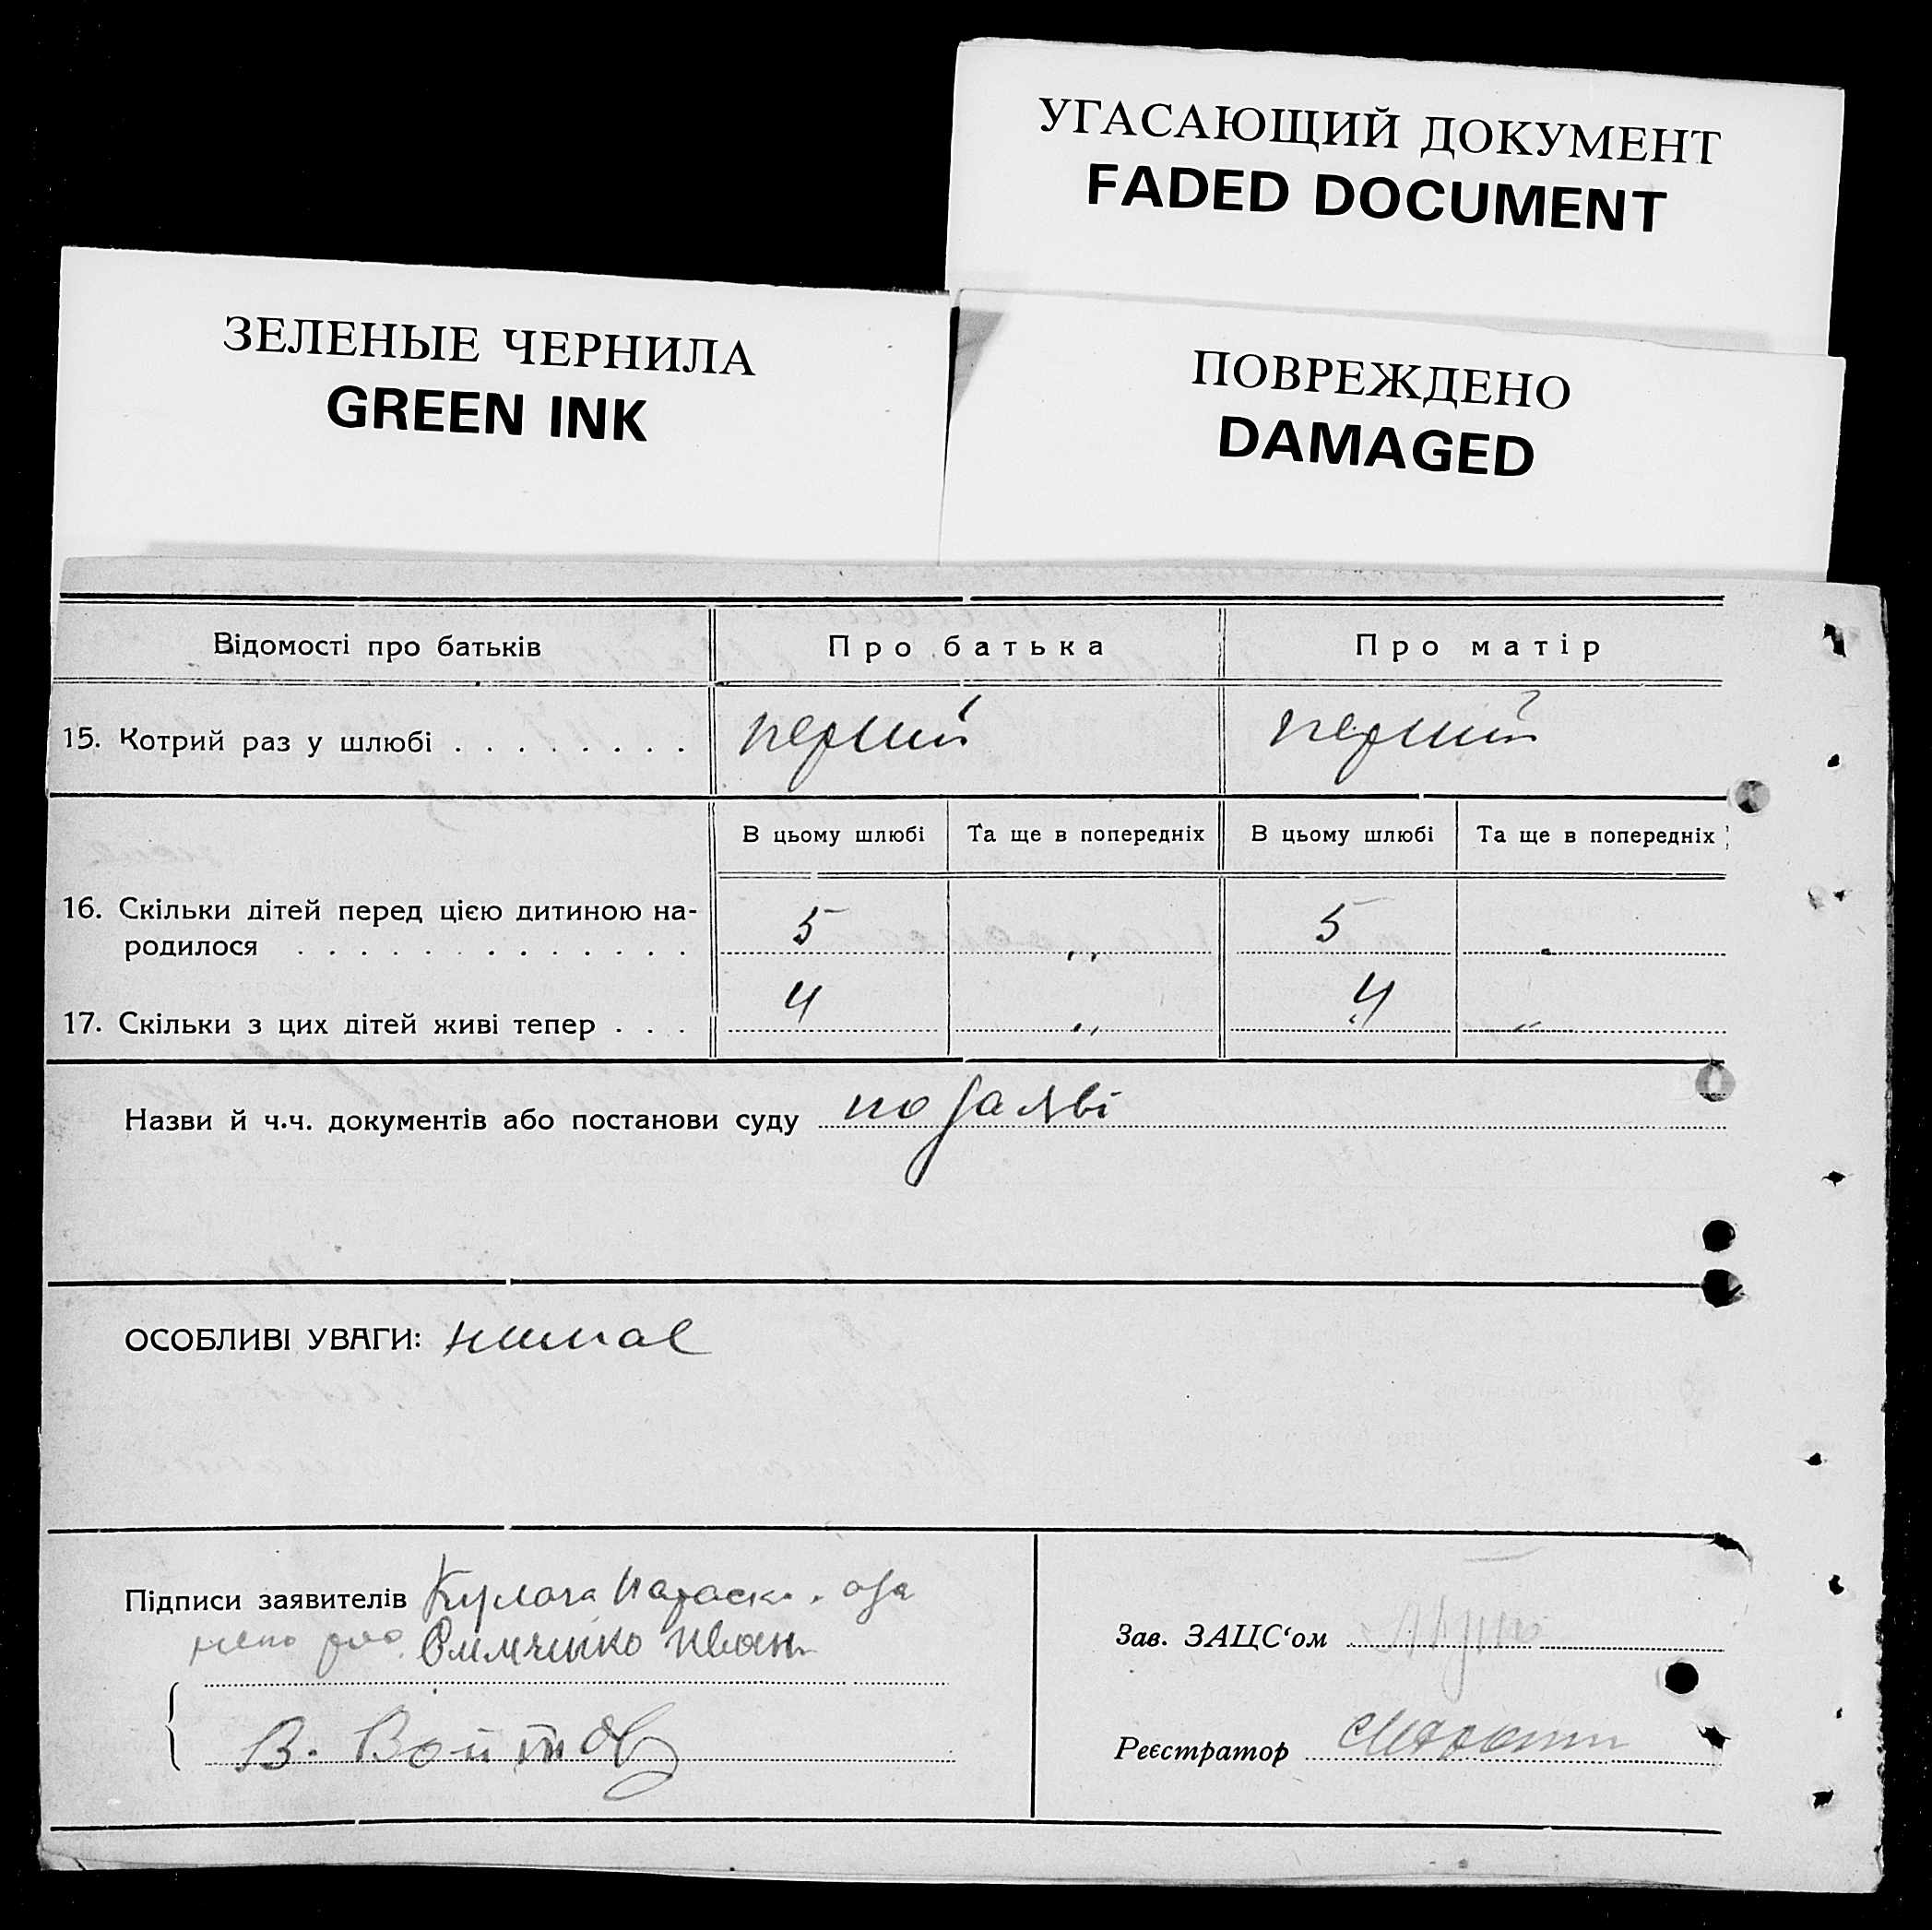 УГАСАЮЩИЙ ДОКУМЕНТ
FADED DOCUMENT
ЗЕЛЕНЫЕ ЧЕРНИЛА
GREEN INK
ПОВРЕЖДЕНО
DAMAGED
Відомості про батьків Про батька Про матір
15. Котрий раз у шлюбі . . . . . . . . перший перший
В цьому шлюбі Та ще в попередніх В цьому шлюбі Та ще в попередніх
16. Скільки дітей перед цією дитиною на-
родилося . . . . . . . . . . . . . 5 „ 5 „
17. Скільки з цих дітей живі тепер . . . 4 „ 4 „
Назви й ч.ч. документів або постанови суду по заяві
ОСОБЛИВІ УВАГИ: нимає
Підписи заявителів Кулага Параска
Іван
В. Войтов
Зав. ЗАЦС‘ом
Реєстратор